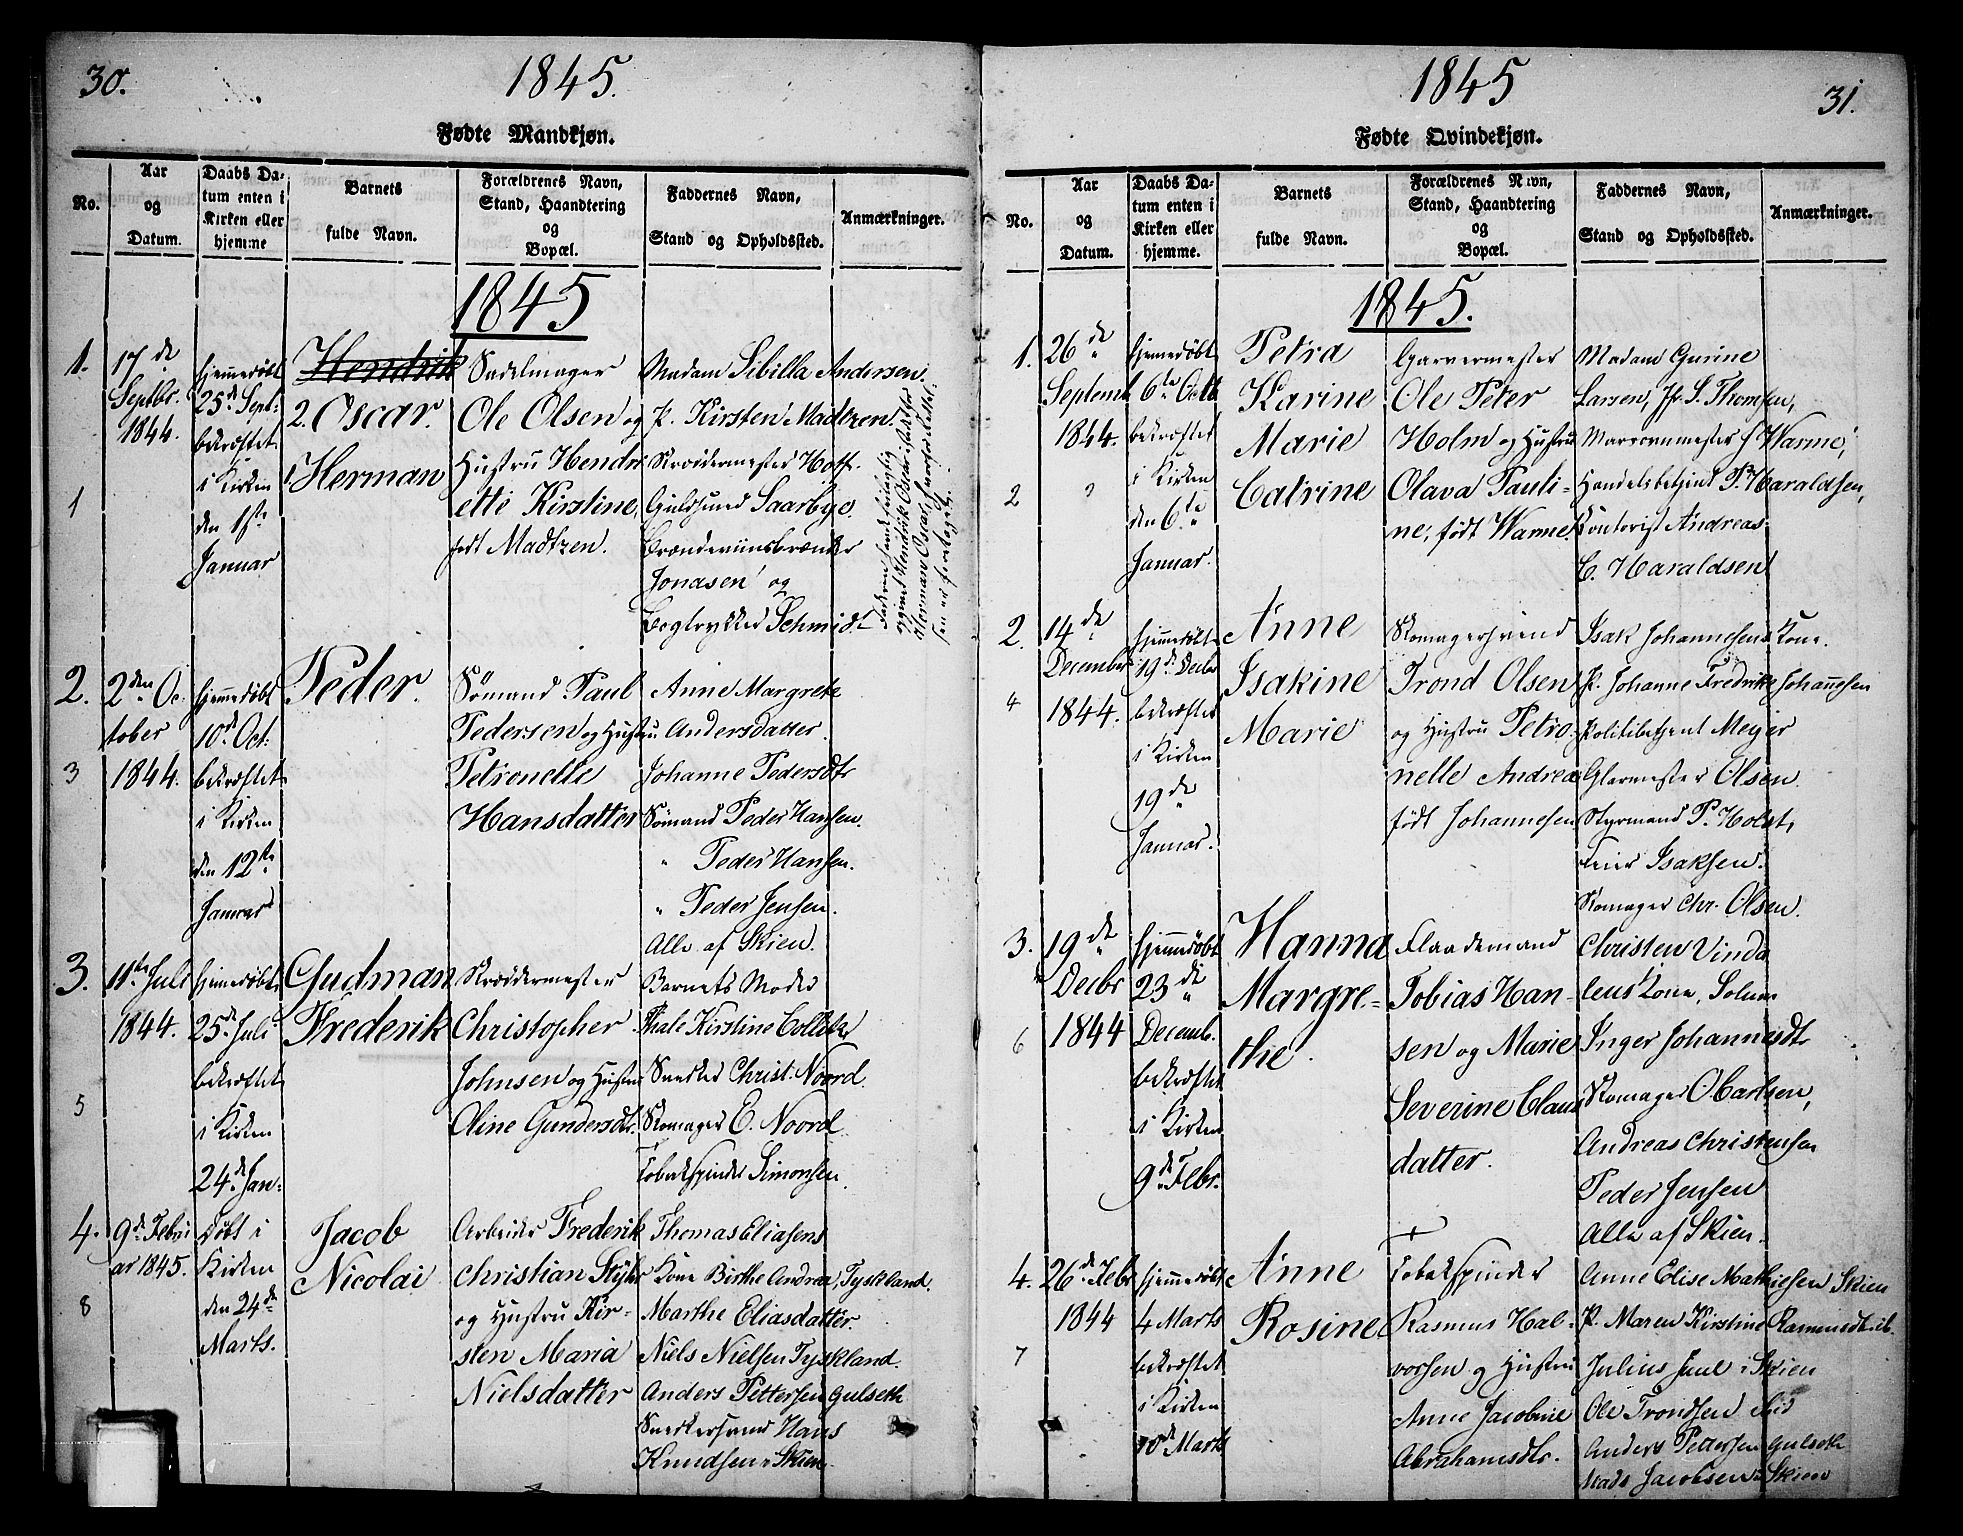 30.
1845.
Fødte Mandkjøn.
No.
Aar og Datum.
Daabs Datum enten i Kirken eller hjemme
Barnets fulde Navn.
Forældrenes Navn, Stand, Haandtering og Bopæl.
Faddernes Navn, Stand og Opholdssted.
Anmærkninger.
1845
1.
17de
Septbr.
1844.
hjemmedøbt
25de Sept:
bekræftet
i Kirken
den 1ste
Januar
Hendrik
2. Oscar.
1. Herman
Sadelmager
Ole Olsen og
Hustru Hendri
ette Kirstine,
født Madtzen.
Madam Sibilla Andersen.
P. Kirsten Madtzen.
Skræddermester Hoff.
Guldsmed Saarbye.
Brændeviinsbrænder
Jonasen og
Bogtrykker Schmidt
1
2.
2den Oc
tober
1844.
hjemmedøbt
10de Oct:
bekræftet
i Kirken
den 12te
Januar
Peder.
Sømand Paul
Pedersen og Hustru
Petronelle
Hansdatter
Anne Margrete
Andersdatter.
Johanne Pedersdtr
Sømand Peder Hansen.
" Peder Hansen.
" Peder Jensen.
Alle af Skien.
3
3.
11te Juli
1844.
hjemmedøbt
25de Juli
bekræftet
i Kirken
24de Jan:
Gudman
Frederik
Skræddermester
Christopher
Johnsen og Hustru
Oline Gundersdtr.
Barnets Moder
Thale Kirstine Collet
Snedker Christ. Noord.
Skomager E. Noord
Tobakspinder Simonsen.
5
4.
9de Febru
ar 1845.
Døbt i
Kirken
den 24de
Marts.
Jacob
Nicolai
Arbeider Frederik
Christian Styhr
og Hustru Kir-
sten Maria
Nielsdatter
Thomas Eliasens
Kone Birthe Andrea, Tyskland.
Marthe Eliasdatter.
Niels Nielsen Tyskland.
Anders Pettersen Gulseth
Snedkersvend Hans
Knudsen Skien.
8
1845
31.
Fødte Qvindekjøn.
No.
Aar og Datum.
Daabs Datum enten i Kirken eller hjemme.
Barnets fulde Navn.
Forældrenes Navn, Stand, Haandtering og Bopæl.
Faddernes Navn, Stand og Opholdssted.
Anmærkninger.
1845.
1.
26de
Septemb
1844.
hjemedøbt
6te Octb
bekræftet
i Kirken
den 6te
Januar.
Petra
Karine
Marie
Catrine
Garvermester
Ole Peter
Holm og Hustru
Olava Pauli-
ne, født Warme
Madam Gurine
Larsen, Jfr S. Thomsen,
Murermester J Warme,
Handelsbetjent P. Haraldsen,
Contorist Andreas
C. Haraldsen
2
2.
14de
December
1844.
hjemmedøbt
19de Decbr
bekræftet
i Kirken
19de
Januar.
Anne
Isakine
Marie
Skomagersvend
Trond Olsen
og Hustru Petro-
nelle Andrea
født Johannesen
Isak Johannesens Kone.
P. Johanne Fredrike Johannesen
Politibetjent Meyer
Glarmester Olsen.
Styrmand P. Holst,
Feier Isaksen.
Skomager Chr. Olsen.
4
3.
19de
Decbr
1844
hjemmedøbt
23de
Decemb.
bekræftet
i Kirken
9de Febr.
Hanna
Margre-
the.
Flaademand
Tobias Han-
sen og Marie
Severine Claus
datter.
Christen Vinda
lens Kone, Solum
Inger Johannesdtr
Skomager O. Carlsen,
Andreas Christensen
Peder Jensen
Alle af Skien.
6
4.
26de Febr
1844
hjemmedøbt
4 Marts
bekræftet
i Kirken
10de Marts
Anne
Rosine
Tobakspinder
Rasmus Hal-
vorsen og Hustru
Anne Jacobine
Abrahamsdtr.
Anne Elise Mathiesen Skien
P. Maren Kirstine
Julius Juul i Skien
Ole Trondsen
Anders Pettersen Gulseth
Mads Jacobsen Skien
7